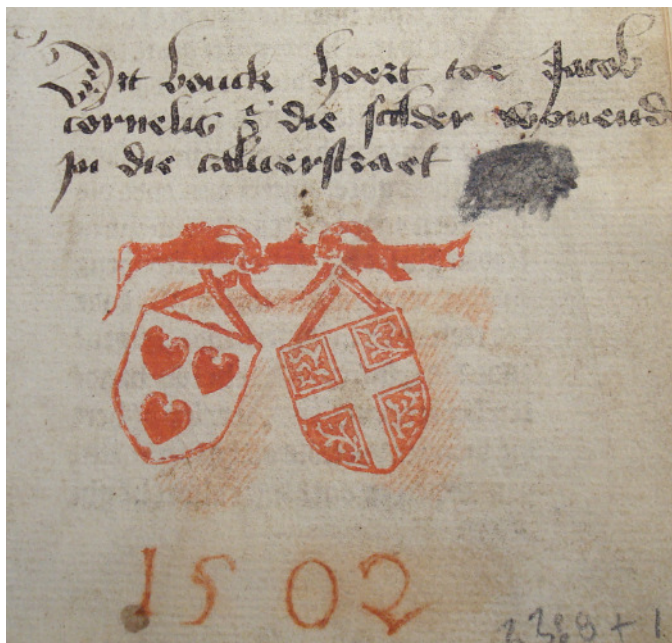 Dit bouck hoert toe Jacob
cornelis z die scilder wonend
jn die caluerstraet
1502
2389 + 1